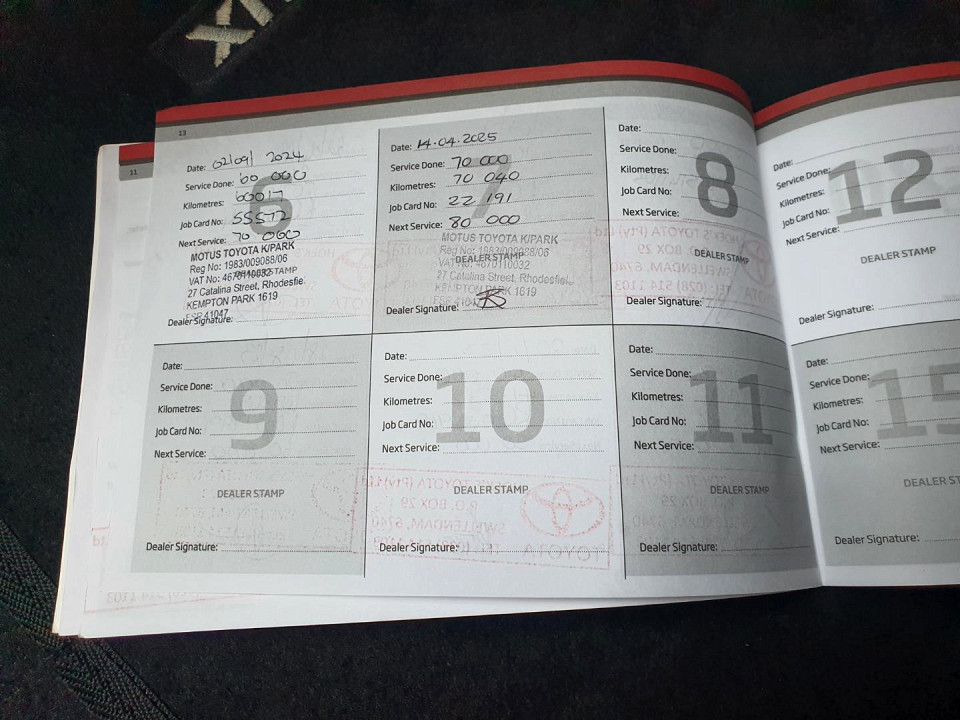 XII
13
11
Date: 02/09/ 2024
Service Done: 60 000
Kilometres: 60017
Job Card No: 55572
Next Service: 70 000
MOTUS TOYOTA K/PARK
Reg No: 1983/009088/06
VAT No: 4670110032
27 Catalina Street, Rhodesfie
KEMPTON PARK 1619
41047
Dealer Signature:
6
Date: 14.04.2025
Service Done: 70 000
Kilometres: 70 040
Job Card No: 22 191
Next Service: 80 000
MOTUS TOYOTA K/PARK
Reg No: 1983/009088/06
DEALER STAMP
VAT No: 4670110032
27 Catalina Street, Rhodesfiel
KEMPTON PARK 1619
Dealer Signature:
7
Date:
Service Done:
Kilometres:
Job Card No:
Next Service:
8
DEALER STAMP
Dealer Signature:
Date:
Service Done:
Kilometres:
Job Card No:
Next Service:
12
DEALER STAMP
Dealer Signature:
Date:
Service Done:
Kilometres:
Job Card No:
Next Service:
9
DEALER STAMP
Dealer Signature:
Date:
Service Done:
Kilometres:
Job Card No:
Next Service:
10
DEALER STAMP
Dealer Signature:
Date:
Service Done:
Kilometres:
Job Card No:
Next Service:
11
DEALER STAMP
Dealer Signature:
Date:
Service Done:
Kilometres:
Job Card No:
Next Service:
15
DEALER ST
Dealer Signature: